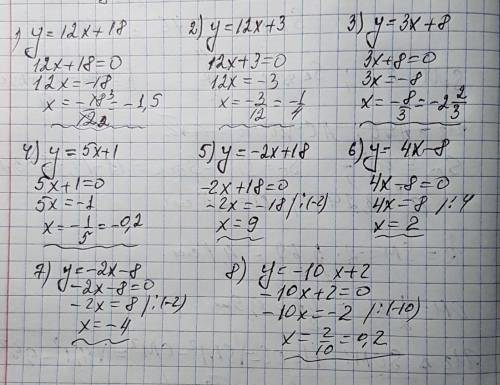 1) y=12x+18
12x+18=0
12x=-18
x=-18³/12₂=-1,5
2) y=12x+3
12x+3=0
12x=-3
x=-3/12=-1/4
3) y=3x+8
3x+8=0
3x=-8
x=-8/3=-2 2/3
4) y=5x+1
5x+1=0
5x=-1
x=-1/5=-0,2
5) y=-2x+18
-2x+18=0
-2x=-18 /:(-2)
x=9
6) y=4x-8
4x-8=0
4x=8 /:4
x=2
7) y=-2x-8
-2x-8=0
-2x=8 /:(-2)
x=-4
8) y=-10x+2
-10x+2=0
-10x=-2 /:(-10)
x=2/10=0,2